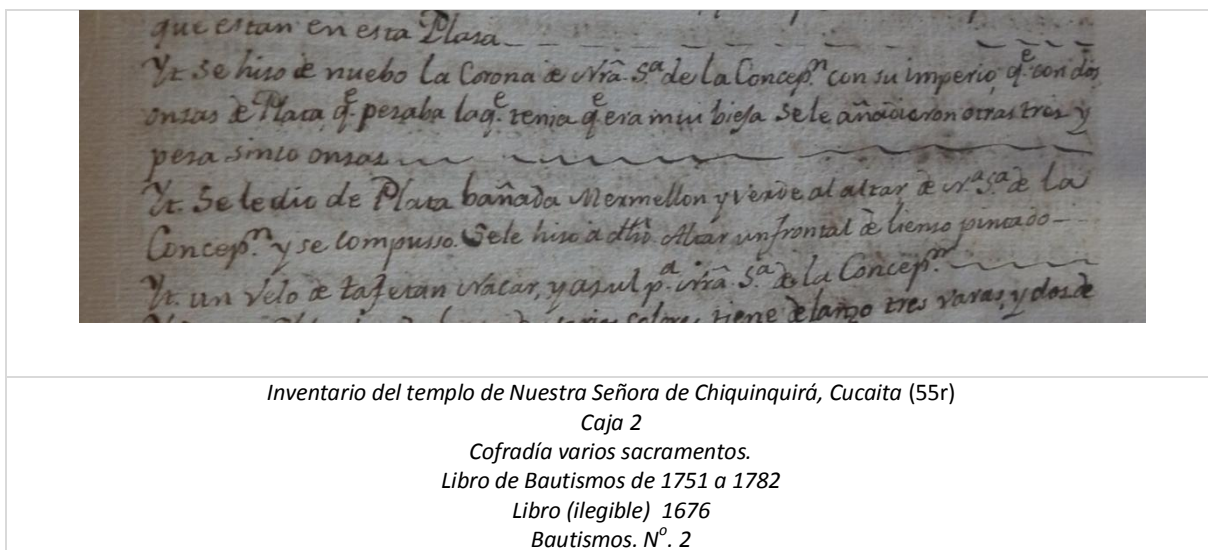 que estan en esta Plasa
Yt. Se hiso de nuebo La Corona de Nrã. S.ª de la Concep.n con su imperio, q.e con dos
onsas de Plata, q.e pezaba la q.e tenia q.e era mui bieja Se le añadieron otras tres y
peza sinco onsas
Yt. Se le dio de Plata bañada Mermellon y verde al altar de Nr.ª S.ª de La
Concep.n y se compusso. Se le hiso a dho. Altar un frontal de lienso pintado
Yt. un Velo de tafetan Nacar, y asul p.ª Nrã. S.ª de la Concep.n
tiene de largo tres varas, y dos de
Inventario del templo de Nuestra Señora de Chiquinquirá, Cucaita (55r)
Caja 2
Cofradía varios sacramentos.
Libro de Bautismos de 1751 a 1782
Libro (ilegible) 1676
Bautismos. Nº. 2